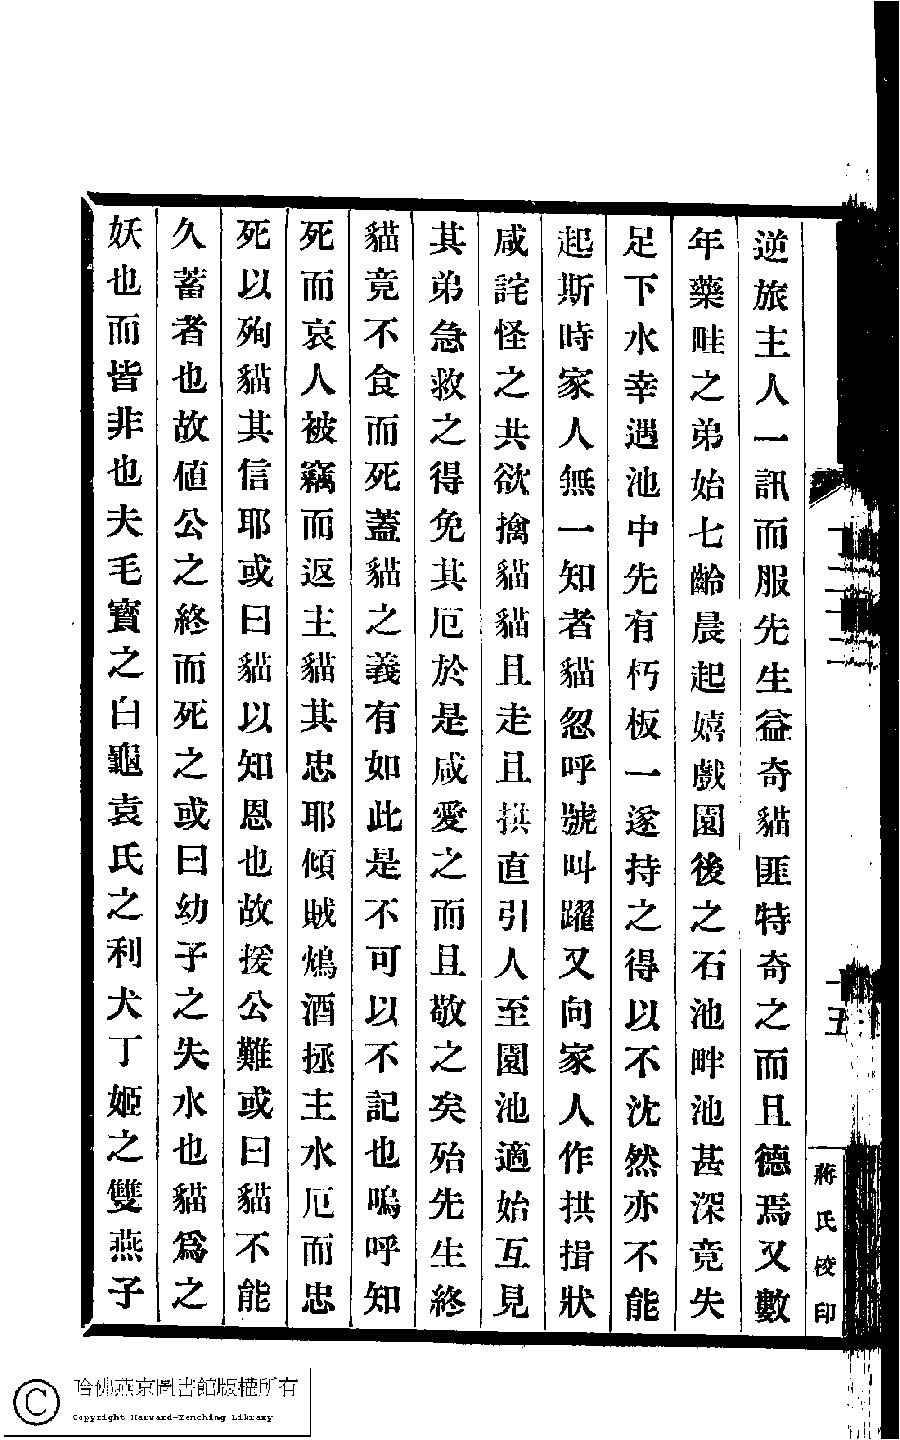 逆旅主人一訊而服先生益奇貓匪特奇之而且德焉又數
年藥畦之弟始七齡晨起嬉戲園後之石池畔池甚深竟失
足下水幸遇池中先有朽板一遂持之得以不沈然亦不能
起斯時家人無一知者貓忽呼號叫躍又向家人作拱揖狀
咸詫怪之共欲擒貓貓且走且拱直引人至園池適始互見
其弟急救之得免其厄於是咸愛之而且敬之矣殆先生終
貓竟不食而死蓋貓之義有如此是不可以不記也嗚呼知
死而哀人被竊而返主貓其忠耶傾賊鴆酒拯主水厄而忠
死以殉貓其信耶或曰貓以知恩也故援公難或曰貓不能
久蓄者也故值公之終而死之或曰幼子之失水也貓爲之
妖也而皆非也夫毛寶之白龜袁氏之利犬丁姬之雙燕子
五
蔣氏校印
哈佛燕京圖書館版權所有
Copyright Harvard-Yenching Library